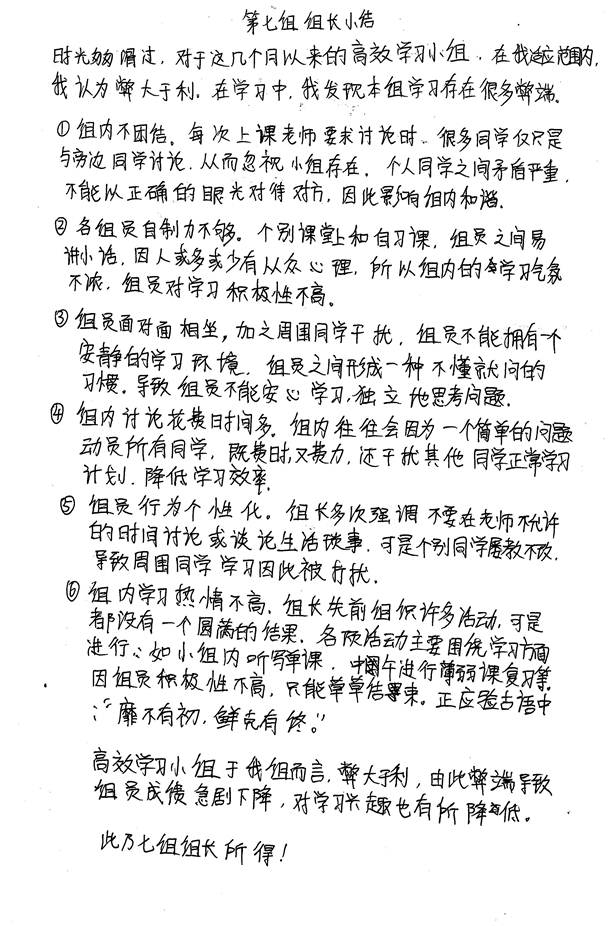 第七组组长小结
时光匆匆溜过，对于这几个月以来的高效学习小组，在我适应范围内，
我认为弊大于利。在学习中，我发现本组学习存在很多弊端。
①组内不团结。每次上课老师要求讨论时、很多同学仅只是
与旁边同学讨论，从而忽视小组存在，个人同学之间矛盾严重，
不能以正确的眼光对待对方，因此影响组内和谐。
②各组员自制力不够。个别课堂上和自习课，组员之间易
讲小话，因人或多或少有从众心理，所以组内的学习气氛
不浓，组员对学习积极性不高。
③组员面对面相坐，加之周围同学干扰，组员不能拥有一个
安静的学习环境，组员之间形成一种不懂就问的
习惯。导致组员不能安心学习，独立地思考问题．
④组内讨论花费时间多。组内往往会因为一个简单的问题
动员所有同学，既费时又费力，还干扰其他同学正常学习
计划，降低学习效率．
⑤组员行为个性化。组长多次强调不要在老师不允许
的时间讨论或谈论生活琐事，可是个别同学屡教不改，
导致周围同学学习因此被打扰．
⑥组内学习热情不高．组长先前组织许多活动，可是
都没有一个圆满的结果．各项活动主要围绕学习方面
进行、如小组内听写单课，中午进行薄弱课复习等。
因组员积极性不高，只能草草结束。正应验古语中
：“靡不有初，鲜克有终。”
高效学习小组于我组而言，弊大于利，由此弊端导致
组员成绩急剧下降，对学习兴趣也有所降低．
此乃七组组长所得！